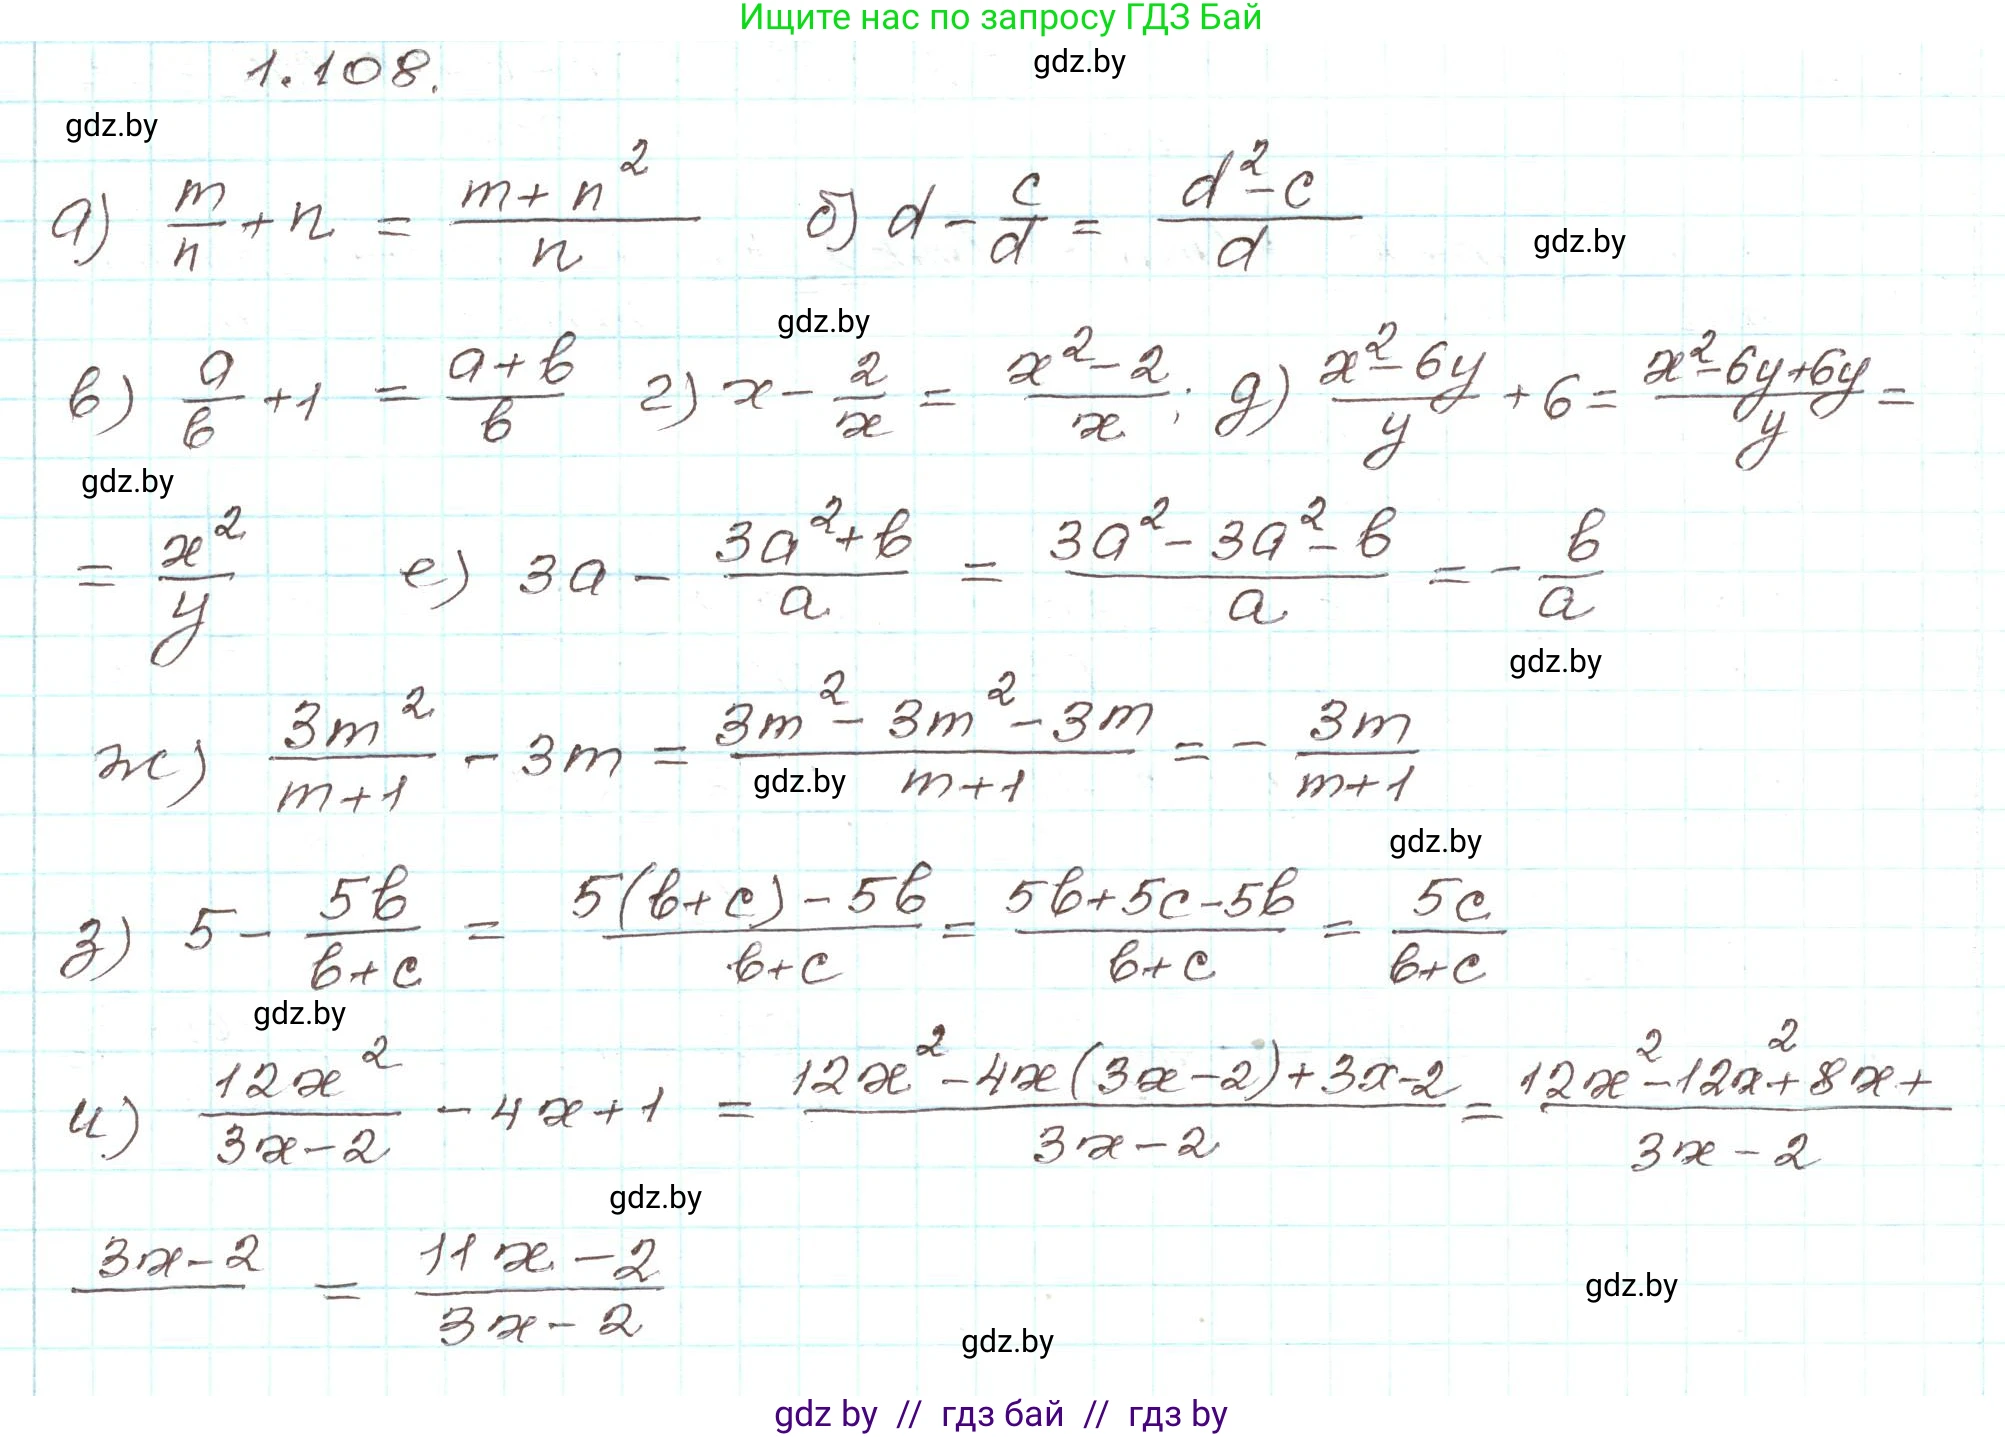 Ищите нас по запросу ГДЗ Бай
1.108.
gdz.by
gdz.by
а) m/n + n = (m + n²)/n   б) d - c/d = (d² - c)/d
gdz.by
gdz.by
в) a/b + 1 = (a + b)/b   г) x - 2/x = (x² - 2)/x ; д) (x² - 6y)/y + 6 = (x² - 6y + 6y)/y =
gdz.by
= x²/y   е) 3a - (3a² + b)/a = (3a² - 3a² - b)/a = - b/a
gdz.by
ж) 3m²/(m+1) - 3m = (3m² - 3m² - 3m)/(m+1) = - 3m/(m+1)
gdz.by
gdz.by
з) 5 - 5b/(b+c) = (5(b+c) - 5b)/(b+c) = (5b + 5c - 5b)/(b+c) = 5c/(b+c)
gdz.by
и) 12x²/(3x-2) - 4x + 1 = (12x² - 4x(3x-2) + 3x - 2)/(3x-2) = (12x² - 12x² + 8x +)/(3x-2)
gdz.by
3x-2 = (11x - 2)/(3x-2)
gdz.by
gdz.by
gdz by // гдз бай // гдз by